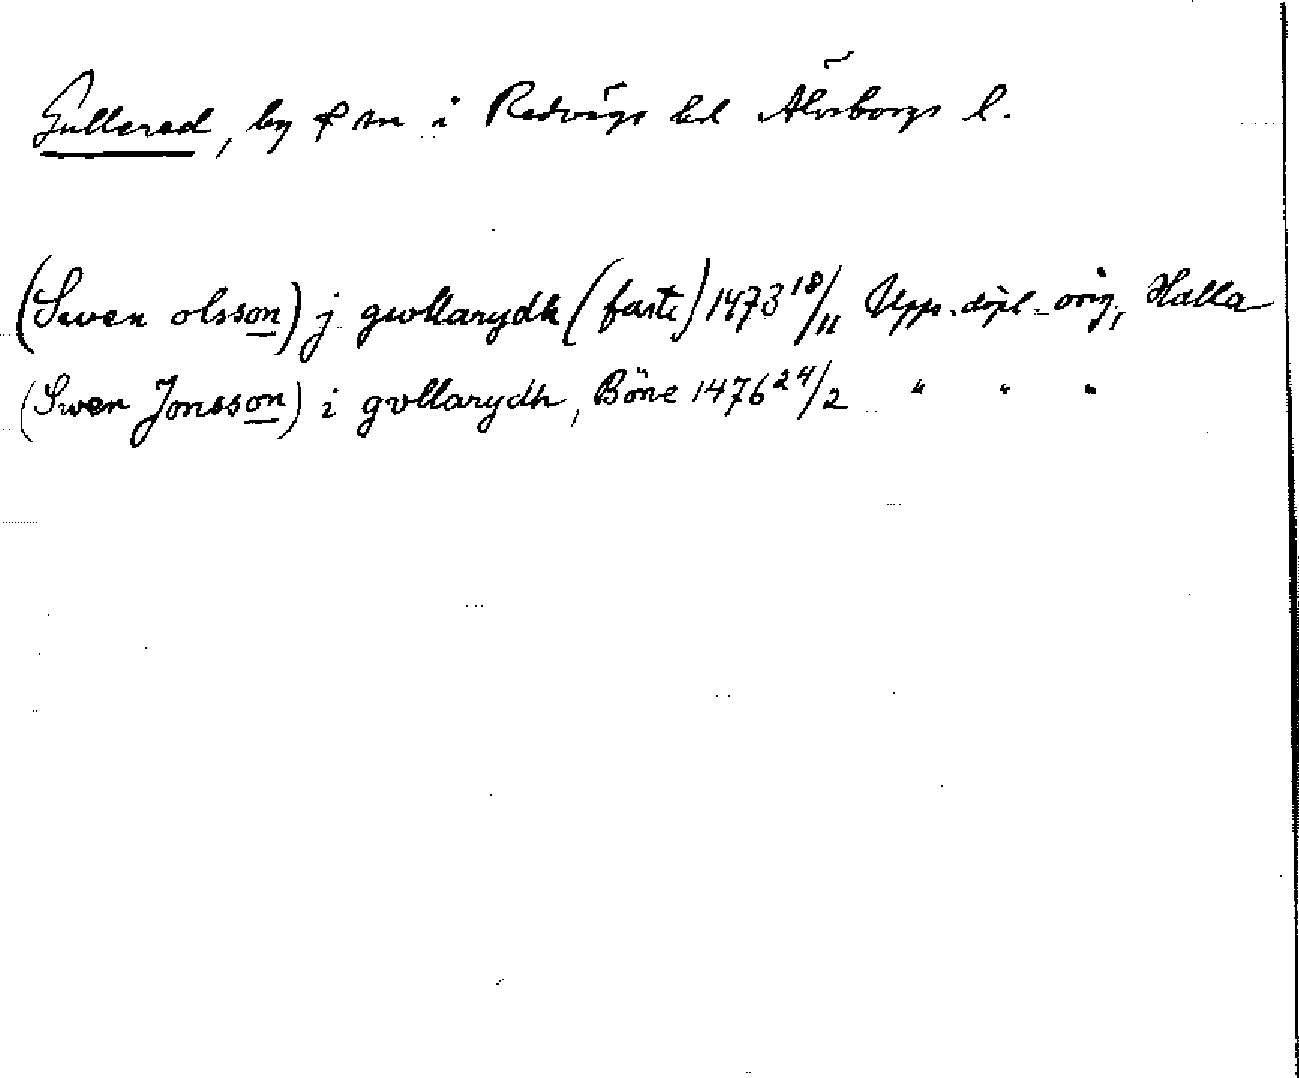 Gullered, by & sn i Redvägs hd Älvsborgs l.
(Swen olsson) j gwllarydh (faste) 1473 18/11 Upps. dipl. orig, Halla
(Swen Jonsson) i gvllarydh, Böne 1476 24/2 " " "